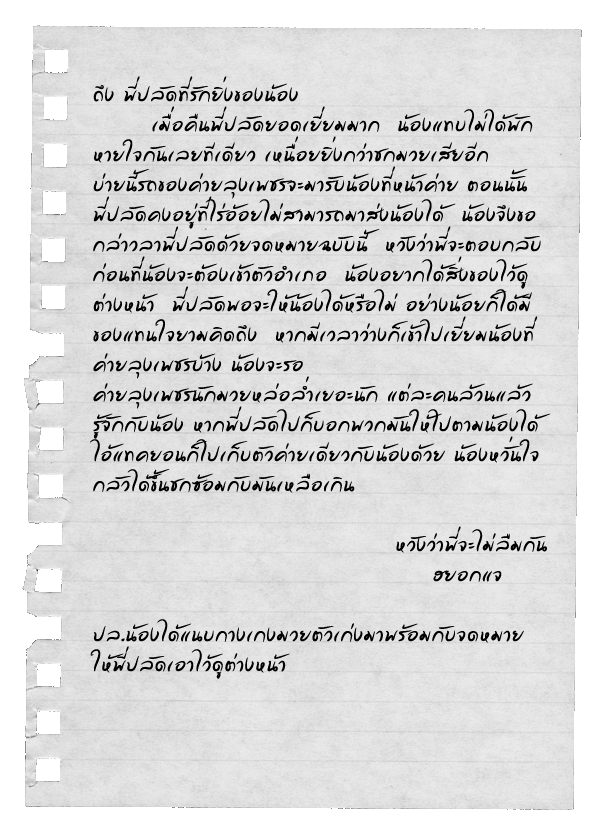 ถึง พี่ปลัดที่รักยิ่งของน้อง
เมื่อคืนพี่ปลัดยอดเยี่ยมมาก น้องแทบไม่ได้พัก
หายใจกันเลยทีเดียว เหนื่อยยิ่งกว่าชกมวยเสียอีก
บ่ายนี้รถของค่ายลุงเพชรจะมารับน้องที่หน้าค่าย ตอนนั้น
พี่ปลัดคงอยู่ที่ไร่อ้อยไม่สามารถมาส่งน้องได้ น้องจึงขอ
กล่าวลาพี่ปลัดด้วยจดหมายฉบับนี้ หวังว่าพี่จะตอบกลับ
ก่อนที่น้องจะต้องเข้าตัวอำเภอ น้องอยากได้สิ่งของไว้ดู
ต่างหน้า พี่ปลัดพอจะให้น้องได้หรือไม่ อย่างน้อยก็ได้มี
ของแทนใจยามคิดถึง หากมีเวลาว่างก็เข้าไปเยี่ยมน้องที่
ค่ายลุงเพชรบ้าง น้องจะรอ
ค่ายลุงเพชรนักมวยหล่อล่ำเยอะนัก แต่ละคนล้วนแล้ว
รู้จักกับน้อง หากพี่ปลัดไปก็บอกพวกมันให้ไปตามน้องได้
ไอ้แทคยอนก็ไปเก็บตัวค่ายเดียวกับน้องด้วย น้องหวั่นใจ
กลัวได้ขึ้นชกซ้อมกับมันเหลือเกิน
หวังว่าพี่จะไม่ลืมกัน
ฮยอกแจ
ปล.น้องได้แนบกางเกงมวยตัวเก่งมาพร้อมกับจดหมาย
ให้พี่ปลัดเอาไว้ดูต่างหน้า